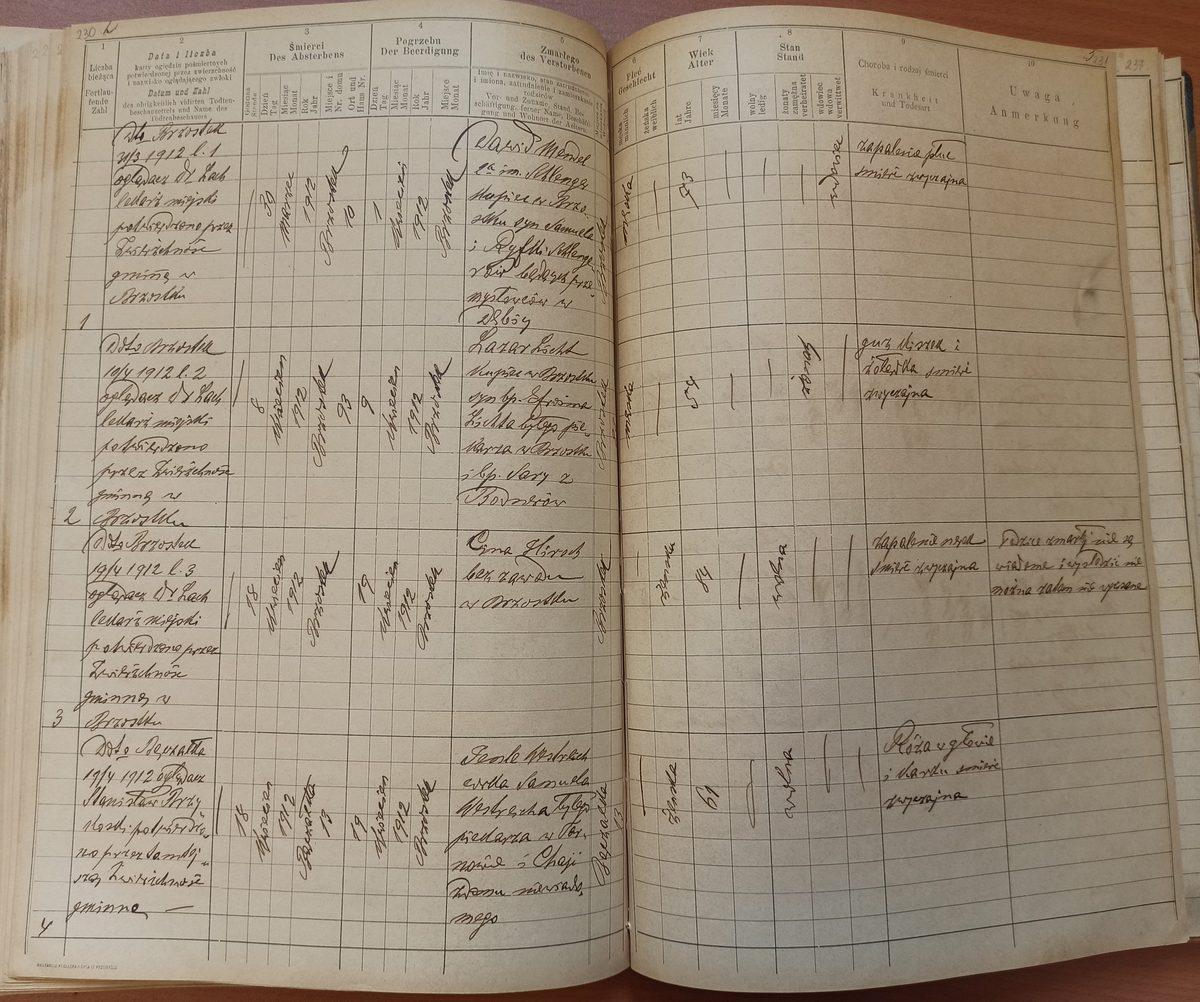 230
1
2
3
4
5
Liczba bieżąca
Fortlaufende Zahl
Data i liczba
karty oględzin pośmiertnych
potwierdzonej przez zwierzchność
i nazwisko oglądającego zwłoki
Datum und Zahl
des obrigkeitlich vidirten Todten-
beschauzettels und Name des
Todtenbeschauers
Śmierci
Des Absterbens
Godzina
Stunde
Dzień
Tag
Miesiąc
Monat
Rok
Jahr
Miejsce i
Nr. domu
Ort und
Haus Nr.
Pogrzebu
Der Beerdigung
Dzień
Tag
Miesiąc
Monat
Rok
Jahr
Miejsce
Zmarłego
des Verstorbenen
Imię i nazwisko, stan, zatrudnienie,
i imiona, zatrudnienie i zamieszkanie
rodziców
Vor- und Zuname, Stand, Be-
schäftigung, ferner Name, Beschäf-
tigung und Wohnort der Aeltern
1
Dtto Brzostek
31/3 1912 l. 1
oglądacz Dr Lach
lekarz miejski
potwierdzono przez
Zwierzchność
gminną w
Brzostku
30
Marzec
1912
Brzostek
10
1
Kwiecień
1912
Brzostek
Dawid Mendel
2a im. Schlenger
kupiec w Brzo-
stku syn Samuela
i Ryfki Schlenge-
rów będących prze-
mysłowców w
Dębicy
2
Dtto Brzostek
10/4 1912 l. 2
oglądacz Dr Lach
lekarz miejski
potwierdzono
przez Zwierzchność
gminną w
Brzostku
8
Kwiecień
1912
Brzostek
93
9
Kwiecień
1912
Brzostek
Lazar Licht
kupiec w Brzostku
syn bp. Efroima
Lichta byłego pie-
karza w Brzostku
i bp. Sary z
Bodnerów
Brzostek
3
Dtto Brzostek
19/4 1912 l. 3
oglądacz Dr Lach
lekarz miejski
potwierdzono przez
Zwierzchność
gminną w
Brzostku
18
Kwiecień
1912
Brzostek
19
Kwiecień
1912
Brzostek
Cyna Hirsch
bez zawodu
w Brzostku
Brzostek
4
Dtto Bączałka
19/4 1912 oglądacz
Stanisław
potwierdzo-
no przez tamtej-
szą Zwierzchność
gminną
18
Kwiecień
1912
Bączałka
13
19
Kwiecień
1912
Brzostek
córka Samuela
byłego
piekarza w Tar-
nowie i Chaji
niewiado-
mego
Bączałka
13
231
6
7
8
9
10
Płeć
Geschlecht
męska
männlich
żeńska
weiblich
Wiek
Alter
lat
Jahre
miesięcy
Monate
Stan
Stand
wolny
ledig
żonaty
zamężna
verheiratet
wdowiec
wdowa
verwittwet
Choroba i rodzaj śmierci
Krankheit
und Todesart
Uwaga
Anmerkung
męska
93
wdowiec
zapalenie płuc
śmierć zwyczajna
męska
54
żonaty
guz kiszek i
żołądka śmierć
zwyczajna
żeńska
84
wolna
zapalenie nerek
śmierć zwyczajna
Rodzice zmarłej nie są
wiadome i wyśledzić nie
można zatem nie wpisane
żeńska
61
wolna
Róża w głowie
i karku śmierć
zwyczajna